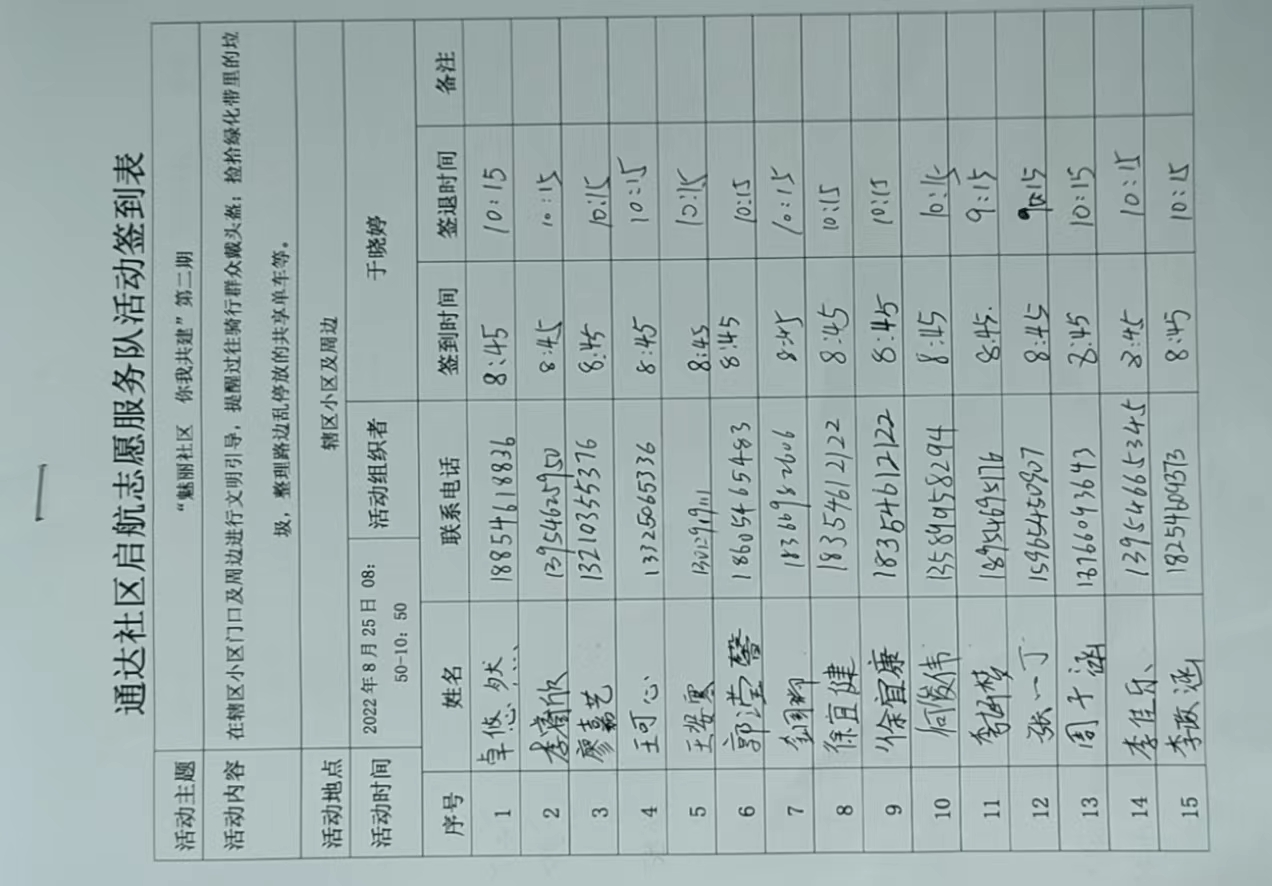 通达社区启航志愿服务队活动签到表
活动主题 “魅丽社区 你我共建”第二期
活动内容 在辖区小区门口及周边进行文明引导，提醒过往骑行群众戴头盔；捡拾绿化带里的垃
圾，整理路边乱停放的共享单车等。
活动地点 辖区小区及周边
活动时间 2022年8月25日 08：
50-10：50 活动组织者 于晓婷
序号 姓名 联系电话 签到时间 签退时间 备注
1 卓悠然 18854618836 8:45 10:15
2 李 欣 13954625950 8:45 10:15
3 廖嘉艺 13210355376 8:45 10:15
4 王可心 13325065336 8:45 10:15
5 王 8:45 10:15
6 郭滢馨 18605465483 8:45 10:15
7 8:45 10:15
8 徐宜健 18354612122 8:45 10:15
9 徐宜康 18354612122 8:45 10:15
10 何俊伟 13589458294 8:45 10:15
11 李 梦 8:45. 9:15
12 张一丁 15965450907 8:45 10:15
13 周千涵 8:45 10:15
14 李佳乐 13954665345 8:45 10:15
15 李政涵 18254604373 8:45 10:15